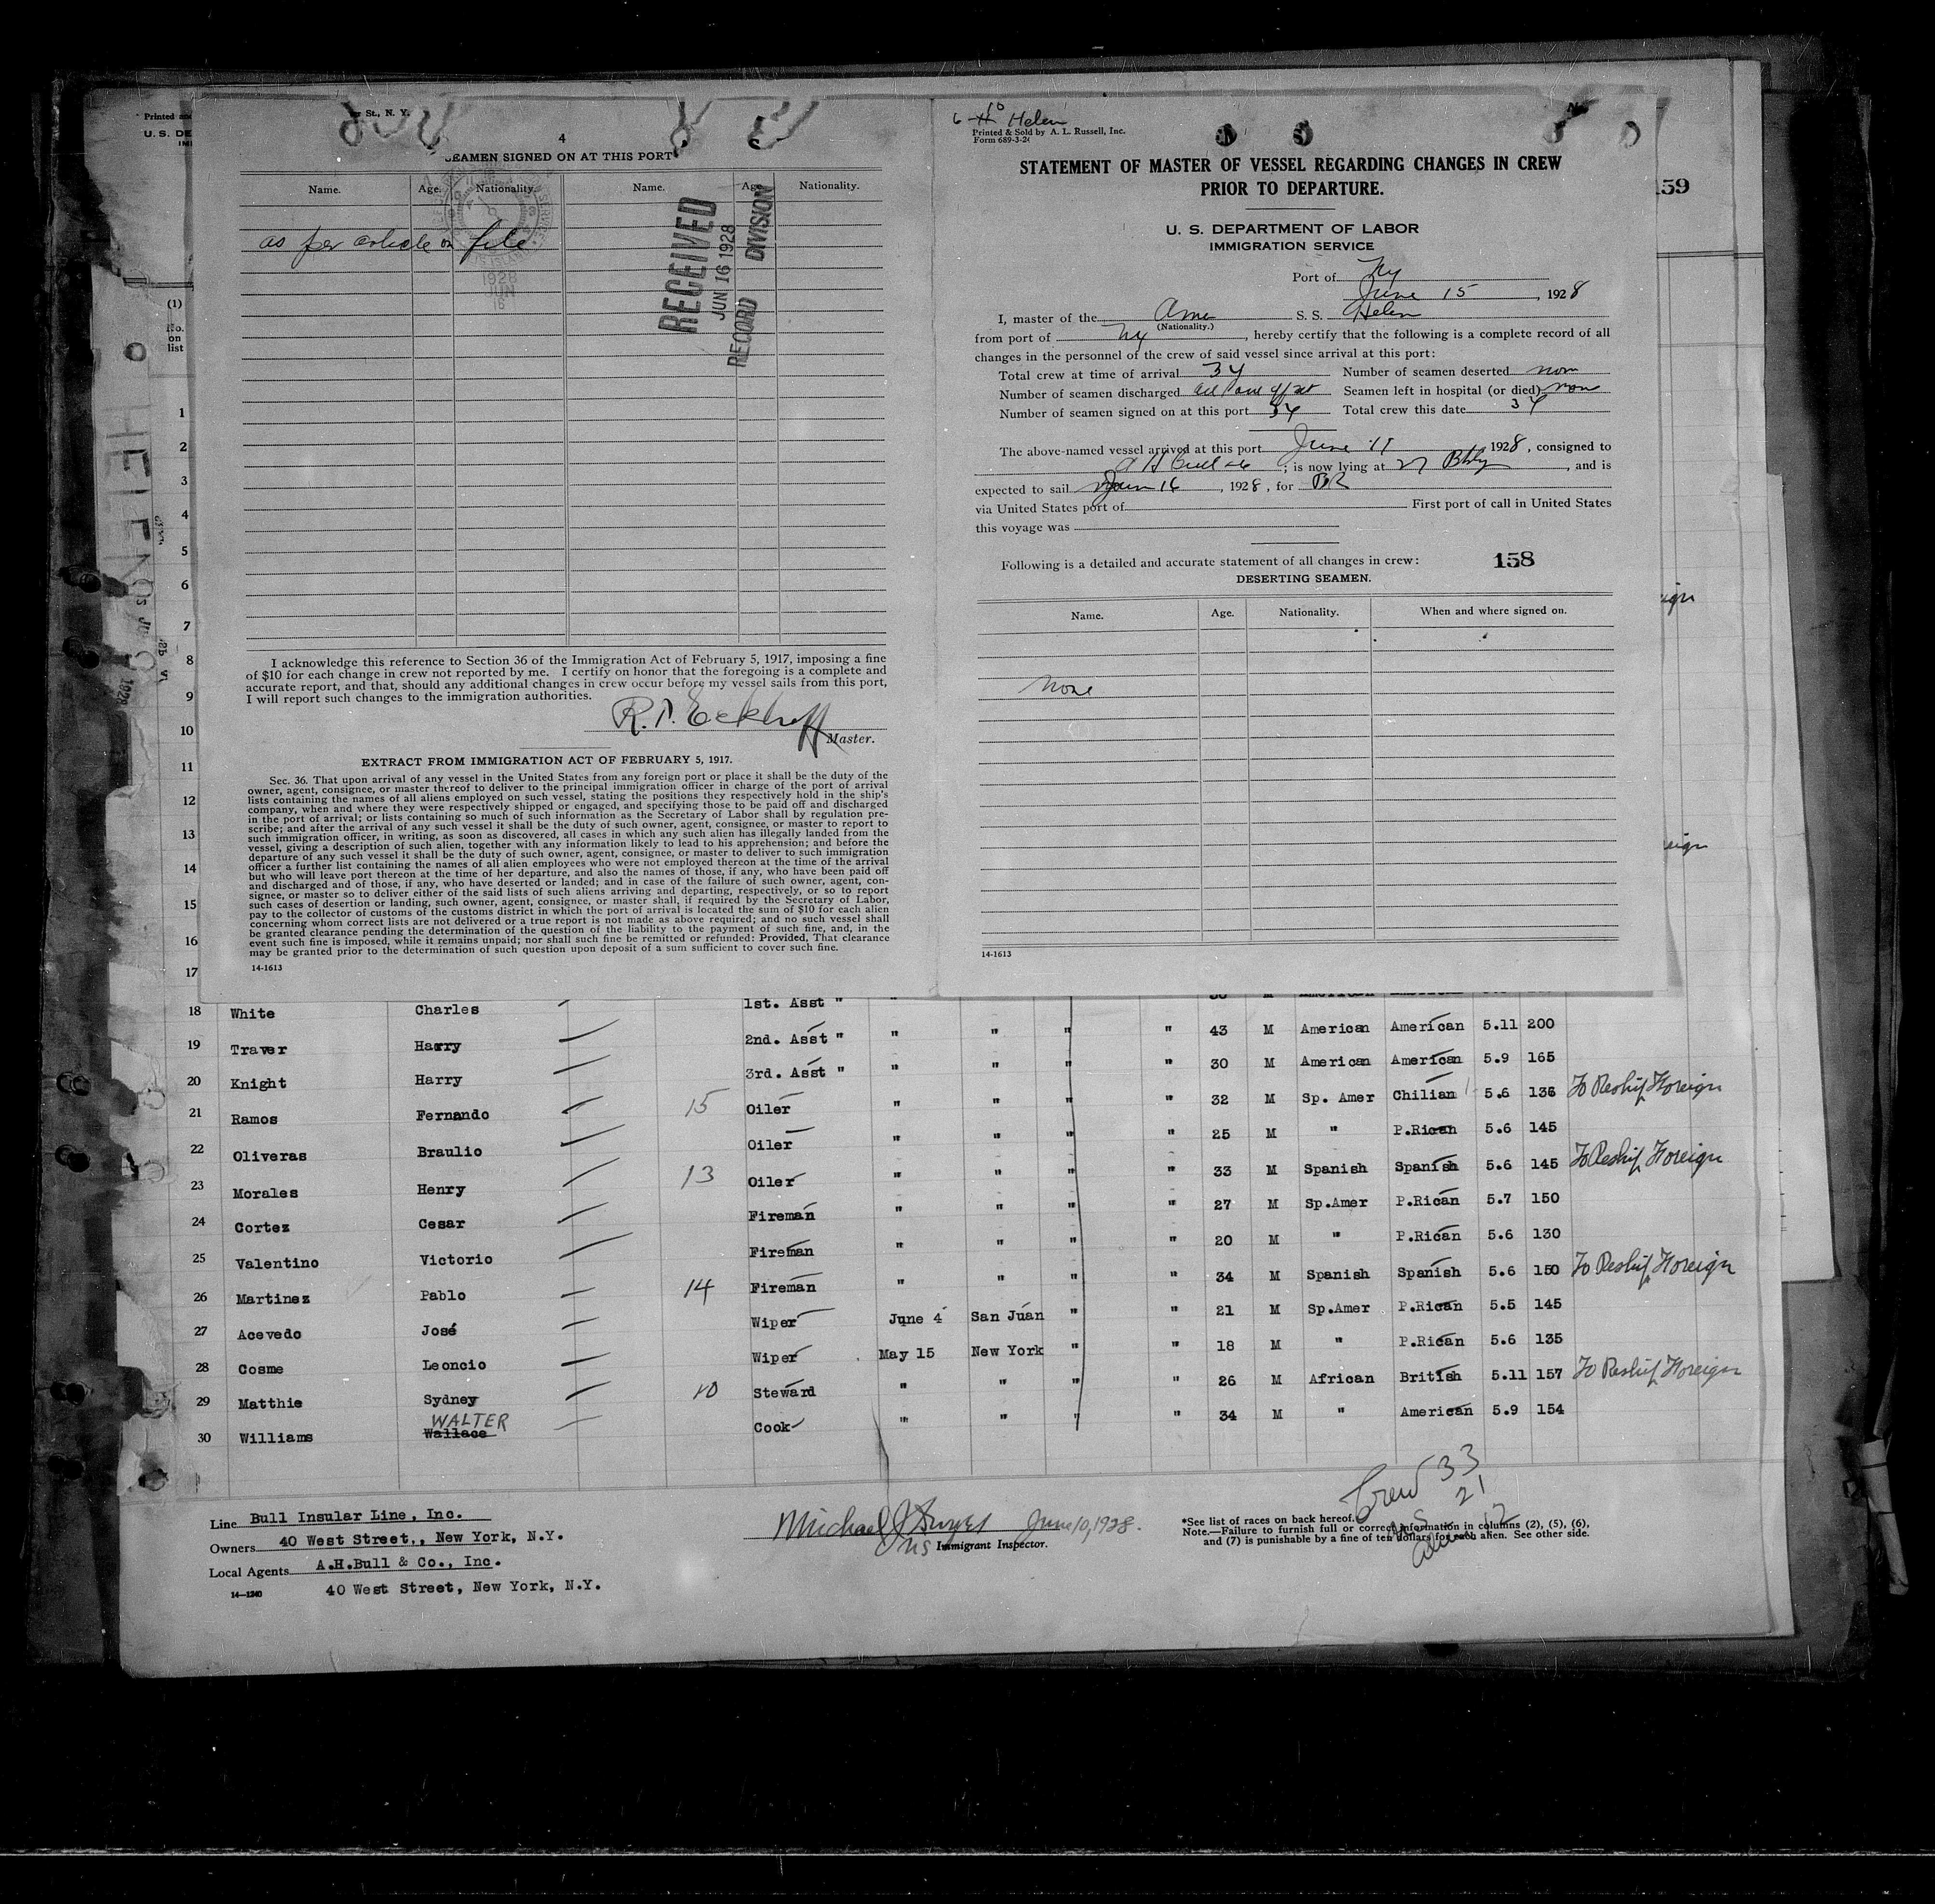 St., N. Y.
4
SEAMEN SIGNED ON AT THIS PORT
Name. Age. Nationality. Name. Age. Nationality.
as per article on file
1928
JUN
16
RECEIVED
JUN 16 1928
RECORD DIVISION
I acknowledge this reference to Section 36 of the Immigration Act of February 5, 1917, imposing a fine
of $10 for each change in crew not reported by me. I certify on honor that the foregoing is a complete and
accurate report, and that, should any additional changes in crew occur before my vessel sails from this port,
I will report such changes to the immigration authorities.
Eckhoff
Master.
EXTRACT FROM IMMIGRATION ACT OF FEBRUARY 5, 1917.
Sec. 36. That upon arrival of any vessel in the United States from any foreign port or place it shall be the duty of the
owner, agent, consignee, or master thereof to deliver to the principal immigration officer in charge of the port of arrival
lists containing the names of all aliens employed on such vessel, stating the positions they respectively hold in the ship's
company, when and where they were respectively shipped or engaged, and specifying those to be paid off and discharged
in the port of arrival; or lists containing so much of such information as the Secretary of Labor shall by regulation pre-
scribe; and after the arrival of any such vessel it shall be the duty of such owner, agent, consignee, or master to report to
such immigration officer, in writing, as soon as discovered, all cases in which any such alien has illegally landed from the
vessel, giving a description of such alien, together with any information likely to lead to his apprehension; and before the
departure of any such vessel it shall be the duty of such owner, agent, consignee, or master to deliver to such immigration
officer a further list containing the names of all alien employees who were not employed thereon at the time of the arrival
but who will leave port thereon at the time of her departure, and also the names of those, if any, who have been paid off
and discharged and of those, if any, who have deserted or landed; and in case of the failure of such owner, agent, con-
signee, or master so to deliver either of the said lists of such aliens arriving and departing, respectively, or so to report
such cases of desertion or landing, such owner, agent, consignee, or master shall, if required by the Secretary of Labor,
pay to the collector of customs of the customs district in which the port of arrival is located the sum of $10 for each alien
concerning whom correct lists are not delivered or a true report is not made as above required; and no such vessel shall
be granted clearance pending the determination of the question of the liability to the payment of such fine, and, in the
event such fine is imposed, while it remains unpaid; nor shall such fine be remitted or refunded: Provided, That clearance
may be granted prior to the determination of such question upon deposit of a sum sufficient to cover such fine.
14-1613
Helen
Printed & Sold by A. L. Russell, Inc.
Form 689-3-2
STATEMENT OF MASTER OF VESSEL REGARDING CHANGES IN CREW
PRIOR TO DEPARTURE.
U. S. DEPARTMENT OF LABOR
IMMIGRATION SERVICE
Port of NY
June 15, 1928
I, master of the Ame S. S. Helen
(Nationality.)
from port of NY, hereby certify that the following is a complete record of all
changes in the personnel of the crew of said vessel since arrival at this port:
Total crew at time of arrival 34 Number of seamen deserted none
Number of seamen discharged all Seamen left in hospital (or died) none
Number of seamen signed on at this port 34 Total crew this date 34
The above-named vessel arrived at this port June 11 1928, consigned to
A H Bull; is now lying at 27 Bklyn, and is
expected to sail June 16, 1928, for PR
via United States port of First port of call in United States
this voyage was
Following is a detailed and accurate statement of all changes in crew: 158
DESERTING SEAMEN.
Name. Age. Nationality. When and where signed on.
None
14-1613
159
Printed and
U. S. DE
IMM
(1)
No.
on
list
HELEN
1
2
3
4
5
6
7
8
9
10
11
12
13
14
15
16
17
18 White Charles 1st. Asst "
19 Traver Harry 2nd. Asst " " " " " 43 M American American 5.11 200
20 Knight Harry 3rd. Asst " " " " " 30 M American American 5.9 165
21 Ramos Fernando 15 Oiler " " " " 32 M Sp. Amer Chilian 5.6 136 To Reship Foreign
22 Oliveras Braulio Oiler " " " " 25 M " P.Rican 5.6 145
23 Morales Henry 13 Oiler " " " " 33 M Spanish Spanish 5.6 145 To Reship Foreign
24 Cortez Cesar Fireman " " " " 27 M Sp.Amer P.Rican 5.7 150
25 Valentino Victorio Fireman " " " " 20 M " P.Rican 5.6 130
26 Martinez Pablo 14 Fireman " " " " 34 M Spanish Spanish 5.6 150 To Reship Foreign
27 Acevedo José Wiper June 4 San Juan " " 21 M Sp.Amer P.Rican 5.5 145
28 Cosme Leoncio Wiper May 15 New York " " 18 M " P.Rican 5.6 135
29 Matthie Sydney 10 Steward " " " " 26 M African British 5.11 157 To Reship Foreign
WALTER
30 Williams Wallace Cook " " " " 34 M " American 5.9 154
Crew 33
21
12
Line Bull Insular Line, Inc.
Owners 40 West Street,, New York, N.Y.
Local Agents A.H.Bull & Co., Inc.
14—1240 40 West Street, New York, N.Y.
Michael J Dwyer June 10, 1928.
US Immigrant Inspector.
*See list of races on back hereof.
Note.—Failure to furnish full or correct information in columns (2), (5), (6),
and (7) is punishable by a fine of ten dollars for each alien. See other side.